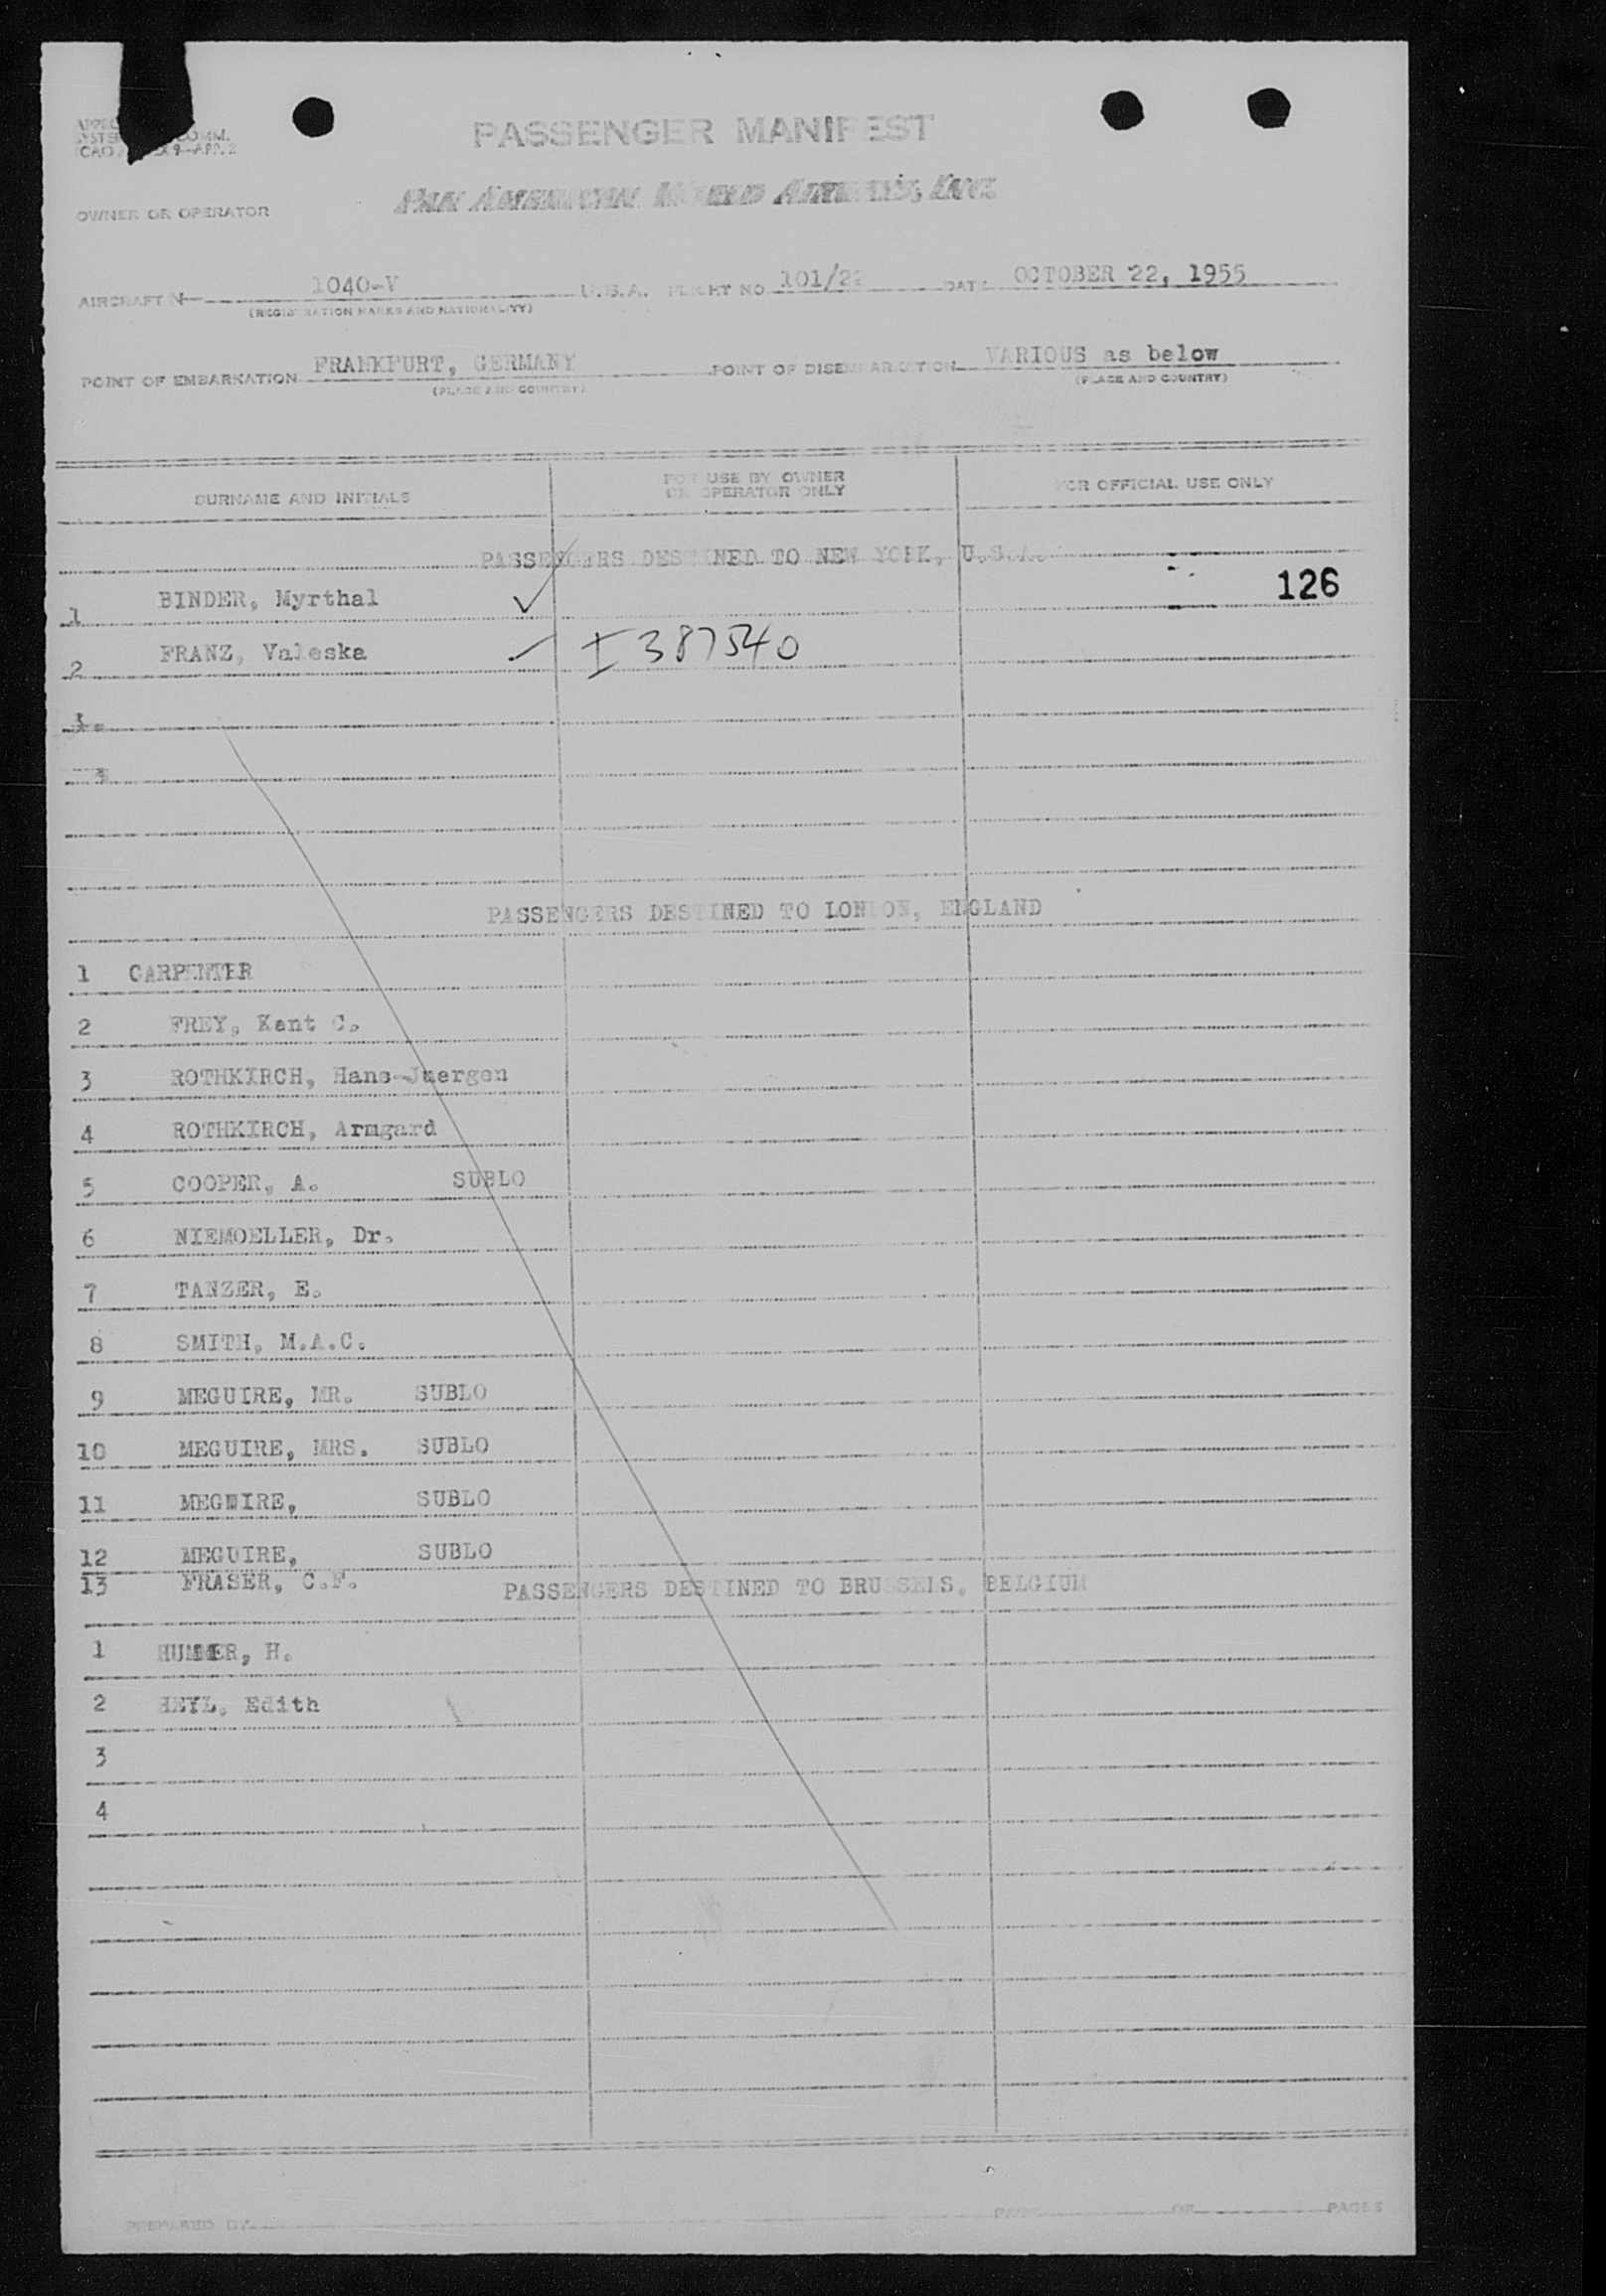 PASSENGER MANIFEST
PAN AMERICAN WORLD AIRWAYS, INC.
OWNER OR OPERATOR
AIRCRAFT N 1040-V U.S.A. FLIGHT NO 101/22 DATE OCTOBER 22, 1955
(REGISTRATION MARKS AND NATIONALITY)
POINT OF EMBARKATION FRANKFURT, GERMANY POINT OF DISEMBARKATION VARIOUS as below
(PLACE AND COUNTRY) (PLACE AND COUNTRY)
SURNAME AND INITIALS FOR USE BY OWNER OR OPERATOR ONLY FOR OFFICIAL USE ONLY
PASSENGERS DESTINED TO NEW YORK, U.S.A.
126
1 BINDER, Myrthal
2 FRANZ, Valeska I 387540
3
PASSENGERS DESTINED TO LONDON, ENGLAND
1 CARPENTER
2 FREY, Kent C.
3 ROTHKIRCH, Hans-Juergen
4 ROTHKIRCH, Armgard
5 COOPER, A. SUBLO
6 NIEMOELLER, Dr.
7 TANZER, E.
8 SMITH, M.A.C.
9 MEGUIRE, MR. SUBLO
10 MEGUIRE, MRS. SUBLO
11 MEGUIRE, SUBLO
12 MEGUIRE, SUBLO
13 FRASER, C.F.
PASSENGERS DESTINED TO BRUSSELS, BELGIUM
1 HUMMER, H.
2 HEYL, Edith
3
4
PREPARED BY PAGE OF PAGES